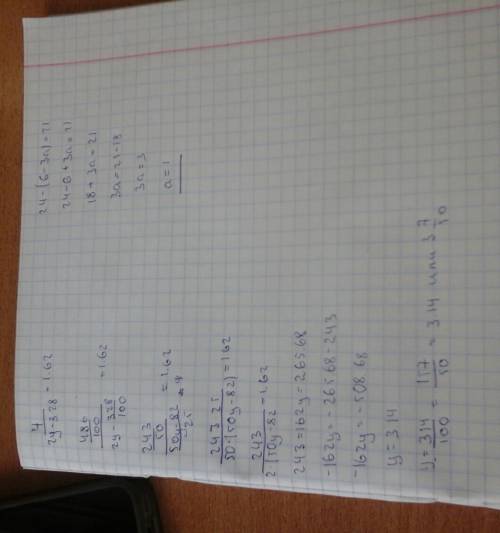 4
2y-3.28 = 1.62
486
100
2y - 328 = 1.62
100
243
50
50y-82 = 1.62
25
243 25
50·(50y-82) = 1.62
243
2 (50y-82 = 1.62
243=162y-265.68
-162y=-265.68-243
-162y=-508.68
y=3.14
y= 314 = 157 = 3.14 или 3 7
100 50 50
24-(6-3a)=21
24-6+3a=21
18+3a=21
3a=21-18
3a=3
a=1